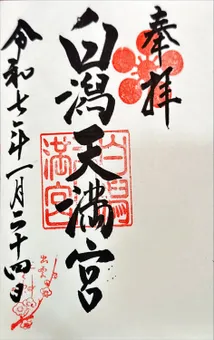 奉拝
白潟天満宮
白潟
天満宮
出雲
令和七年一月二十四日